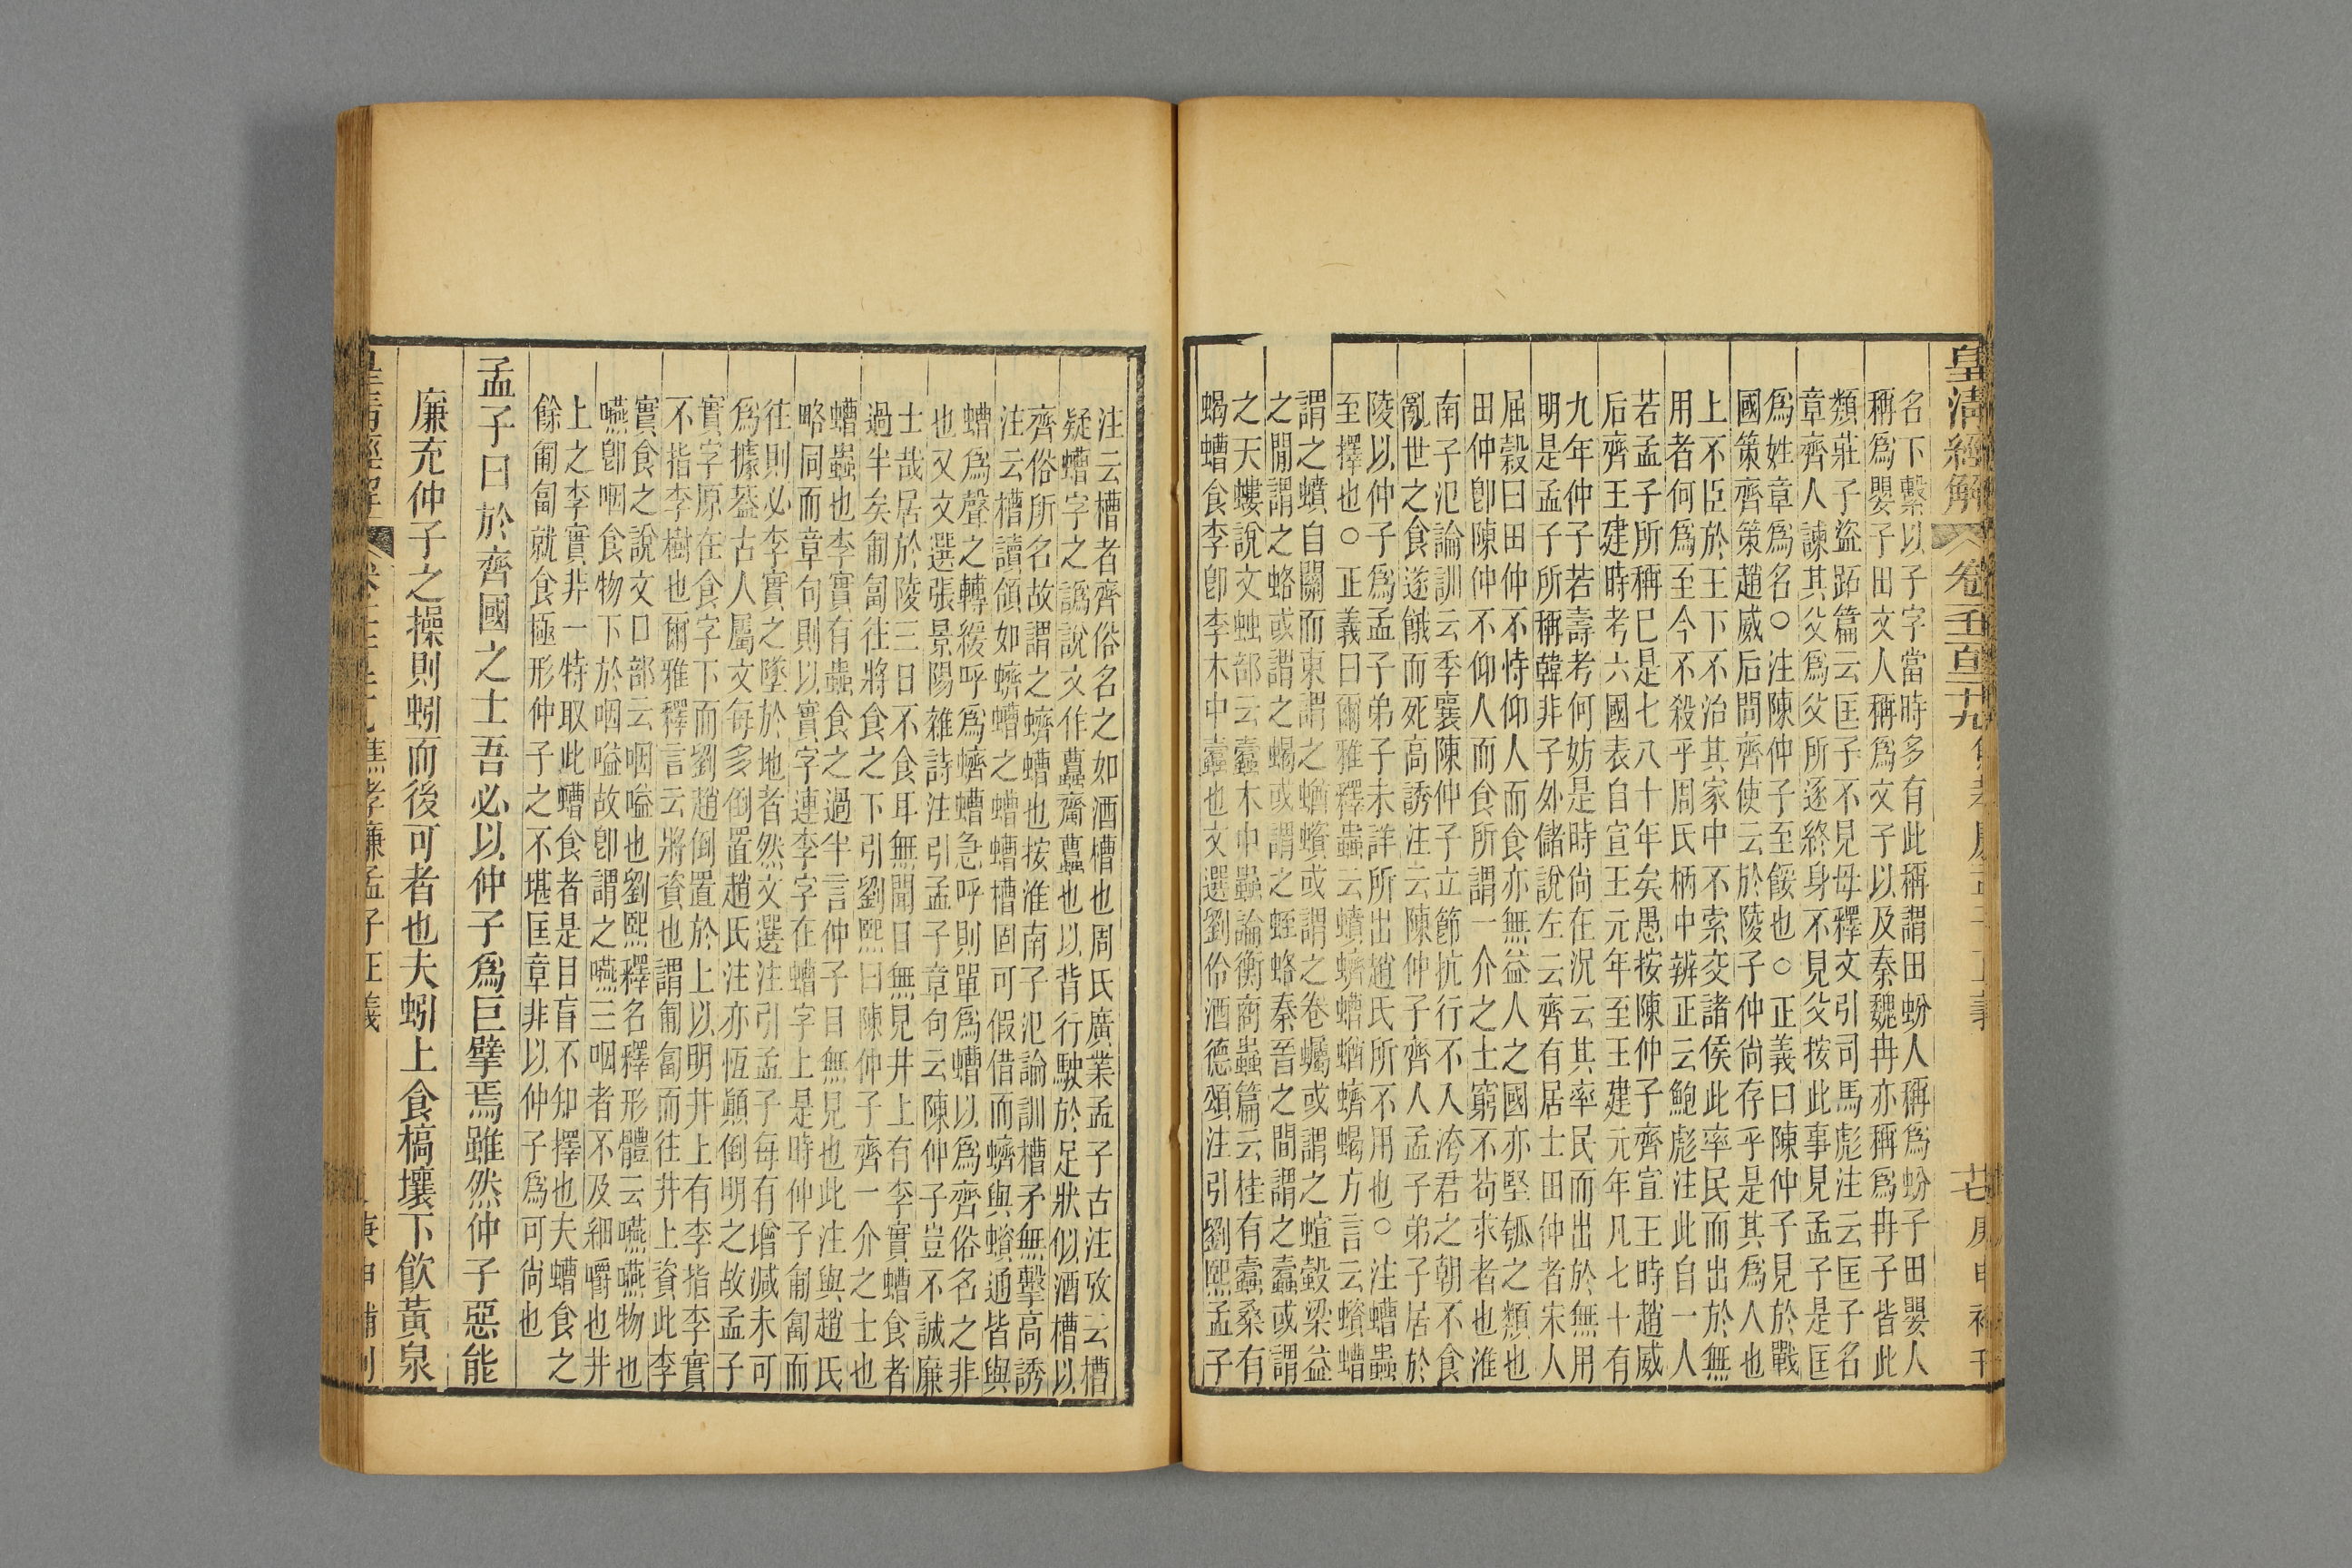 皇清經解 卷千百十九 庚申補刊
名下繫以子字當時多有此稱謂田蚡人稱爲蚡子田嬰人
稱爲嬰子田文人稱爲文子以及秦魏冉亦稱爲冉子皆此
類莊子盜跖篇云匡子不見母釋文引司馬彪注云匡子名
章齊人諫其父爲父所逐終身不見父按此事見孟子是匡
爲姓章爲名○注陳仲子至餒也○正義曰陳仲子見於戰
國策齊策趙威后問齊使云於陵子仲尙存乎是其爲人也
上不臣於王下不治其家中不索交諸侯此率民而出於無
用者何爲至今不殺乎周氏柄中辨正云鮑彪注此自一人
若孟子所稱已是七八十年矣愚按陳仲子齊宣王時趙威
后齊王建時考六國表自宣王元年至王建元年凡七十有
九年仲子若壽考何妨是時尙在況云其率民而出於無用
明是孟子所稱韓非子外儲說左云齊有居士田仲者宋人
屈穀曰田仲不恃仰人而食亦無益人之國亦堅瓠之類也
田仲卽陳仲不仰人而食所謂一介之士窮不苟求者也淮
南子氾論訓云季襄陳仲子立節抗行不入洿君之朝不食
亂世之食遂餓而死高誘注云陳仲子齊人孟子弟子居於
陵以仲子爲孟子弟子未詳所出趙氏所不用也○注螬蟲
至擇也○正義曰爾雅釋蟲云蟦蠐螬蝤蠐蝎方言云蠀螬
謂之蟦自關而東謂之蝤蠀或謂之卷蠾或謂之蝖毂梁益
之閒謂之蛒或謂之蝎或謂之蛭蛒秦晉之間謂之蠹或謂
之天螻說文䖵部云蠹木中蟲論衡商蟲篇云桂有蠹桑有
蝎螬食李卽李木中蠹也文選劉伶酒德頌注引劉熙孟子
注云槽者齊俗名之如酒槽也周氏廣業孟子古注攷云槽
疑螬字之譌說文作𧕅齎𧕅也以背行駛於足狀似酒槽以
齊俗所名故謂之蠐螬也按淮南子氾論訓槽矛無擊高誘
注云槽讀領如蠐螬之螬螬槽固可假借而蠐與蠀通皆與
螬爲聲之轉緩呼爲蠐螬急呼則單爲螬以爲齊俗名之非
也又文選張景陽雜詩注引孟子章句云陳仲子豈不誠廉
士哉居於陵三日不食耳無聞目無見井上有李實螬食者
過半矣匍匐往將食之下引劉熙曰陳仲子齊一介之士也
螬蟲也李實有蟲食之過半言仲子目無見也此注與趙氏
略同而章句則以實字連李字在螬字上是時仲子匍匐而
往則必李實之墜於地者然文選注引孟子每有增減未可
爲據葢古人屬文每多倒置趙氏注亦恆顚倒明之故孟子
實字原在食字下而劉趙倒置於上以明井上有李指李實
不指李樹也爾雅釋言云將資也謂匍匐而往井上資此李
實食之說文口部云咽嗌也劉熙釋名釋形體云嚥嚥物也
嚥卽咽食物下於咽嗌故卽謂之嚥三咽者不及細嚼也井
上之李實非一特取此螬食者是目盲不知擇也夫螬食之
餘匍匐就食極形仲子之不堪匡章非以仲子爲可尙也
孟子曰於齊國之士吾必以仲子爲巨擘焉雖然仲子惡能
廉充仲子之操則蚓而後可者也夫蚓上食槁壤下飮黃泉
皇清經解 焦孝廉孟子正義 庚申補刊